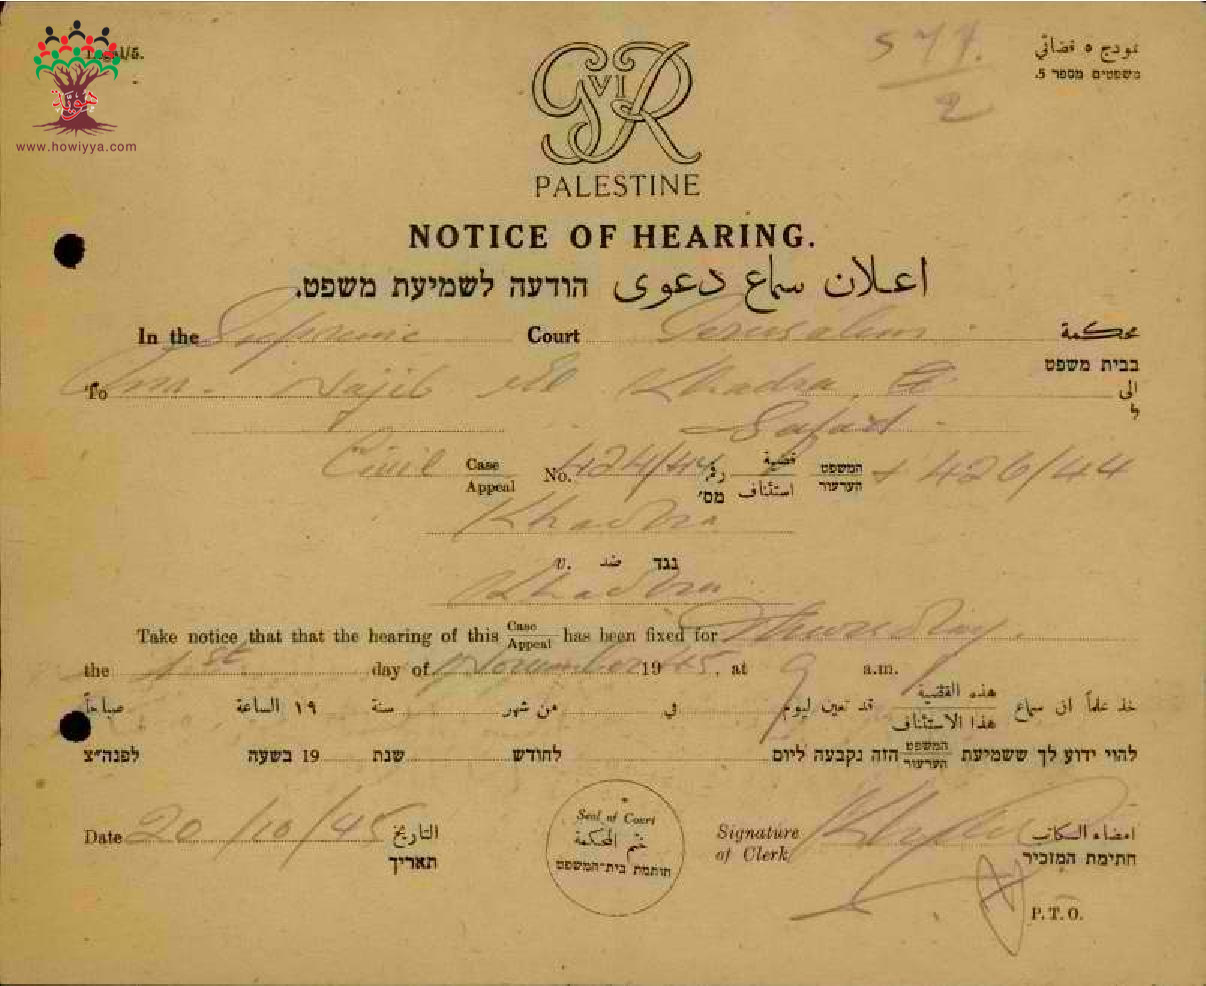 Legal/5.
نموذج ٥ قضائي
משפטים מספר 5.
577.
2
هوية
www.howiyya.com
G VI R
PALESTINE
NOTICE OF HEARING.
اعلان سماع دعوى הודעה לשמיעת משפט.
In the Supreme Court Jerusalem. محكمة
בבית משפט
To Najib Khadra الى
ל
Safad
Civil Case Appeal No. 424/44 رقم מס' قضية استئناف המשפט הערעור + 426/44
Khadra
v. ضد נגד
Khadra
Take notice that that the hearing of this Case Appeal has been fixed for Thursday.
the 1st day of November 1945, at 9 a.m.
خذ علماً ان سماع هذه القضية هذا الاستئناف قد تعين ليوم في من شهر سنة ١٩ الساعة صباحاً
להוי ידוע לך ששמיעת המשפט הערעור הזה נקבעה ליום לחודש שנת 19 בשעה לפנה״צ
Date 20/10/45 التاريخ
תאריך
Seal of Court
ختم المحكمة
חותמת בית־המשפט
Signature of Clerk
امضاء الكاتب
חתימת המזכיר
P.T.O.